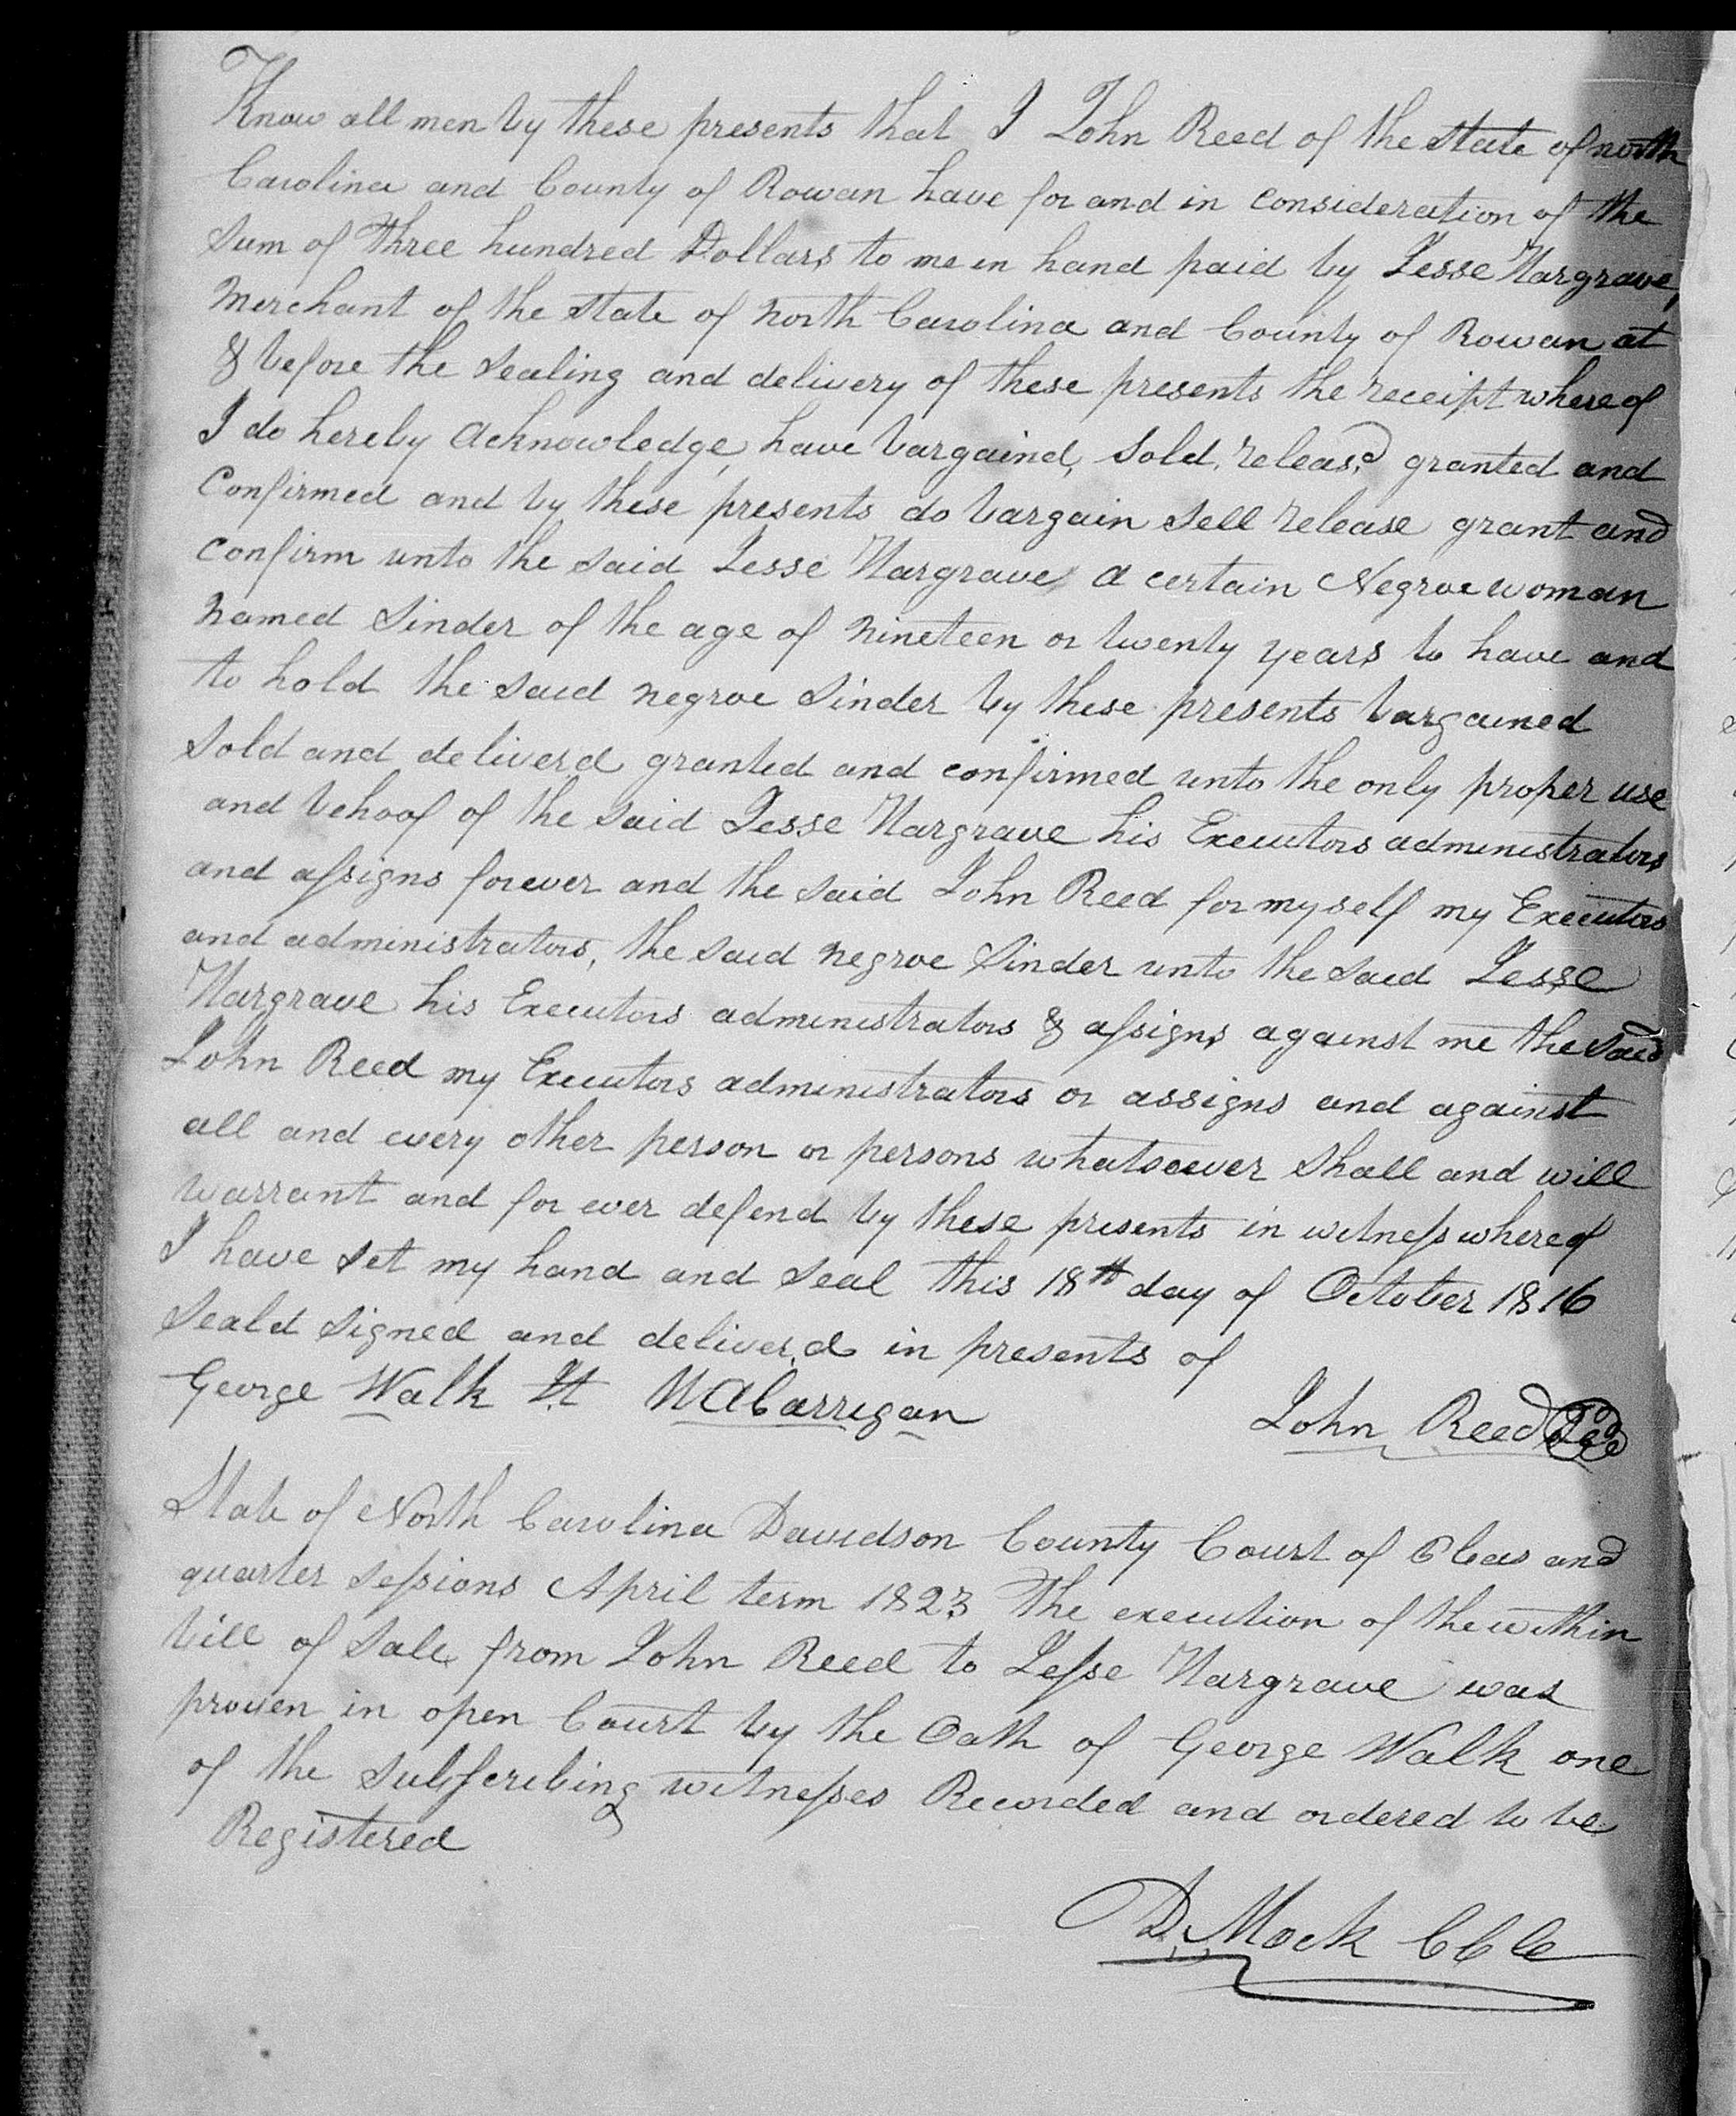 Know all men by these presents that I John Reed of the State of north
Carolina and County of Rowan have for and in consideration of the
Sum of three hundred Dollars to me in hand paid by Jesse Hargrave,
Merchant of the State of North Carolina and County of Rowan at
& before the sealing and delivery of these presents the receipt whereof
I do hereby acknowledge, have bargaind, Sold, releas,d granted and
Confirmed and by these presents do bargain sell release grant and
confirm unto the said Jesse Hargrave a certain Negroe woman
named Sinder of the age of nineteen or twenty years to have and
to hold the said negroe Sinder by these presents bargained
sold and deliverd granted and confirmed unto the only proper use
and behoof of the said Jesse Hargrave his Executors administrators
and assigns forever and the said John Reed for myself my Executors
and administrators, the said negroe Sinder unto the said Jesse
Hargrave his Executors administrators & assigns against me the said
John Reed my Executors administrators or assigns and against
all and every other person or persons whatsoever shall and will
warrant and for ever defend by these presents in witness whereof
I have set my hand and seal this 18th day of October 1816
Seald signed and deliver,d in presents of
George Walk Jt
John Reed
State of North Carolina Davidson County Court of Pleas and
quarter sessions April term 1823 The execution of the within
bill of sale from John Reed to Jesse Hargrave was
proven in open Court by the Oath of George Walk one
of the subscribing witnesses Recorded and ordered to be
Registered
D. Mock CClk